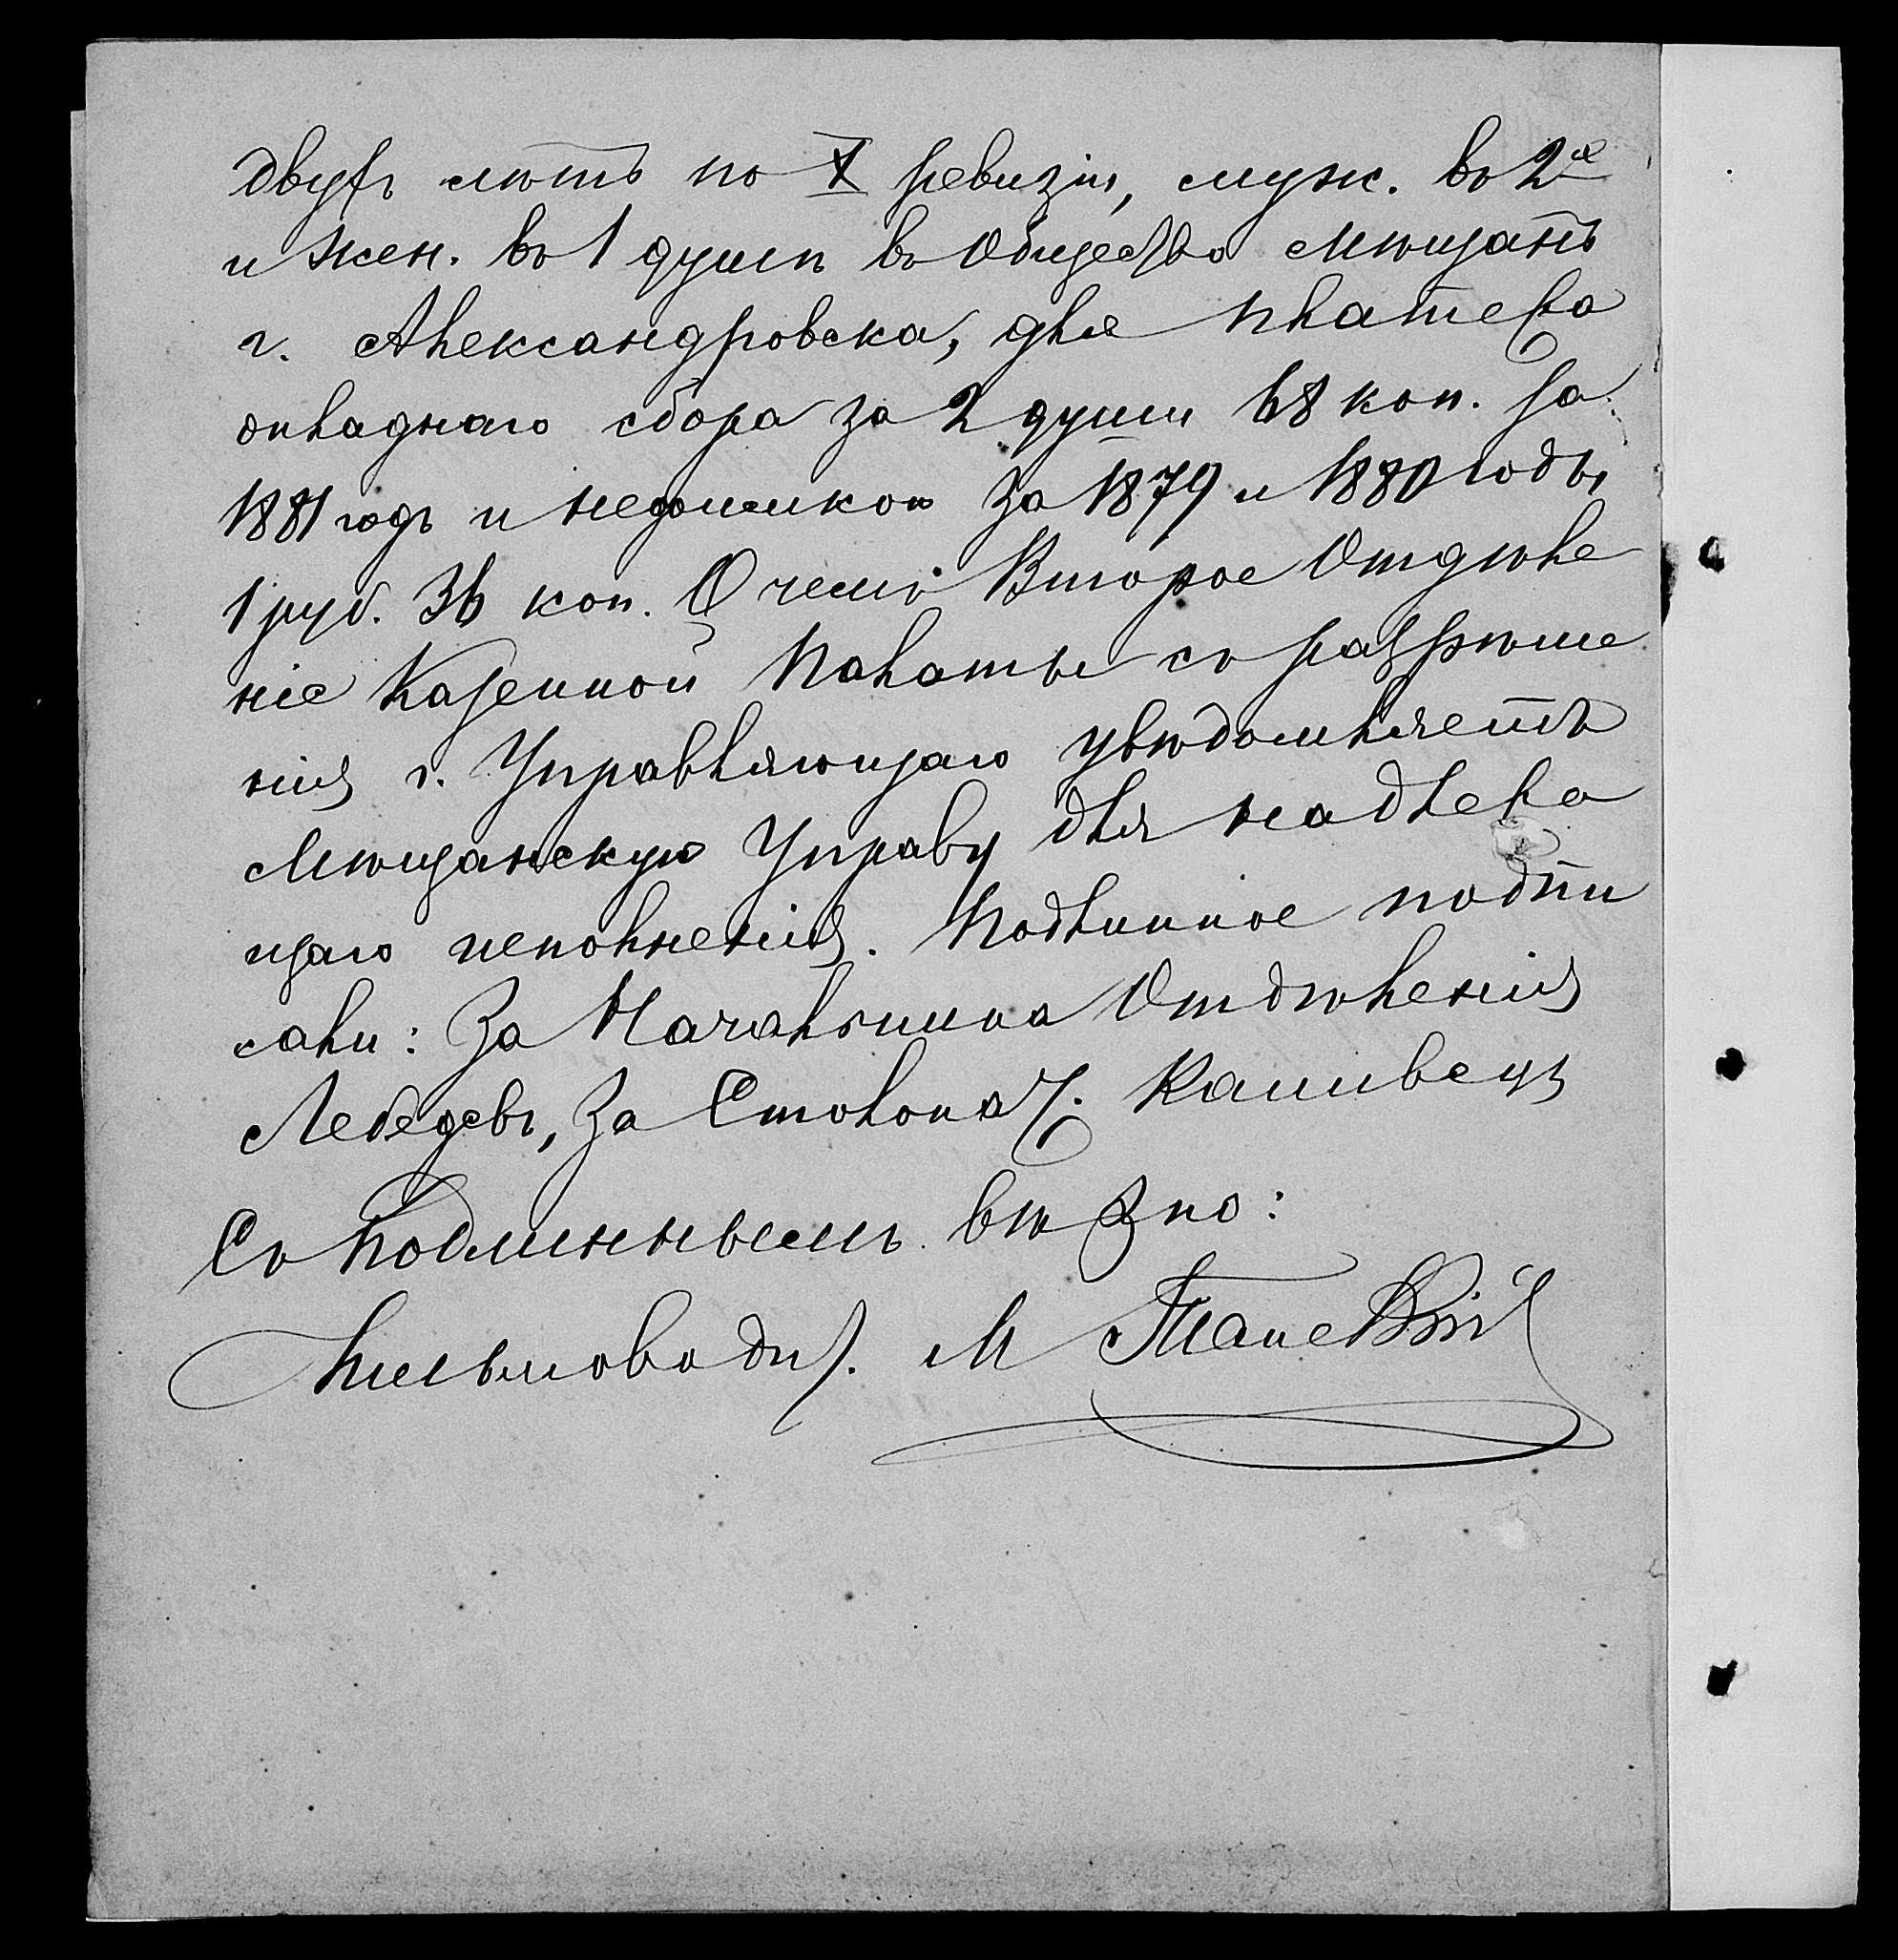 двухъ лѣтъ по X ревизіи, муж. въ 2х
и жен. въ 1 душѣ въ общество Мѣщанъ
г. Александровска, для платежа
окладнаго сбора за 2 души 68 коп. за
1881 годъ и недоимкою за 1879 и 1880 годы
1 руб. 36 коп. О чемъ Второе Отдѣле
ніе Казенной Палаты съ разрѣше
нія г. Управляющаго увѣдомляетъ
Мѣщанскую Управу для надлежа
щаго исполненія. Подлинное подпи
сали: За Начальника Отдѣленія
Лебедевъ, За Столонач.
Съ подлиннымъ вѣрно:
Письмовод. М